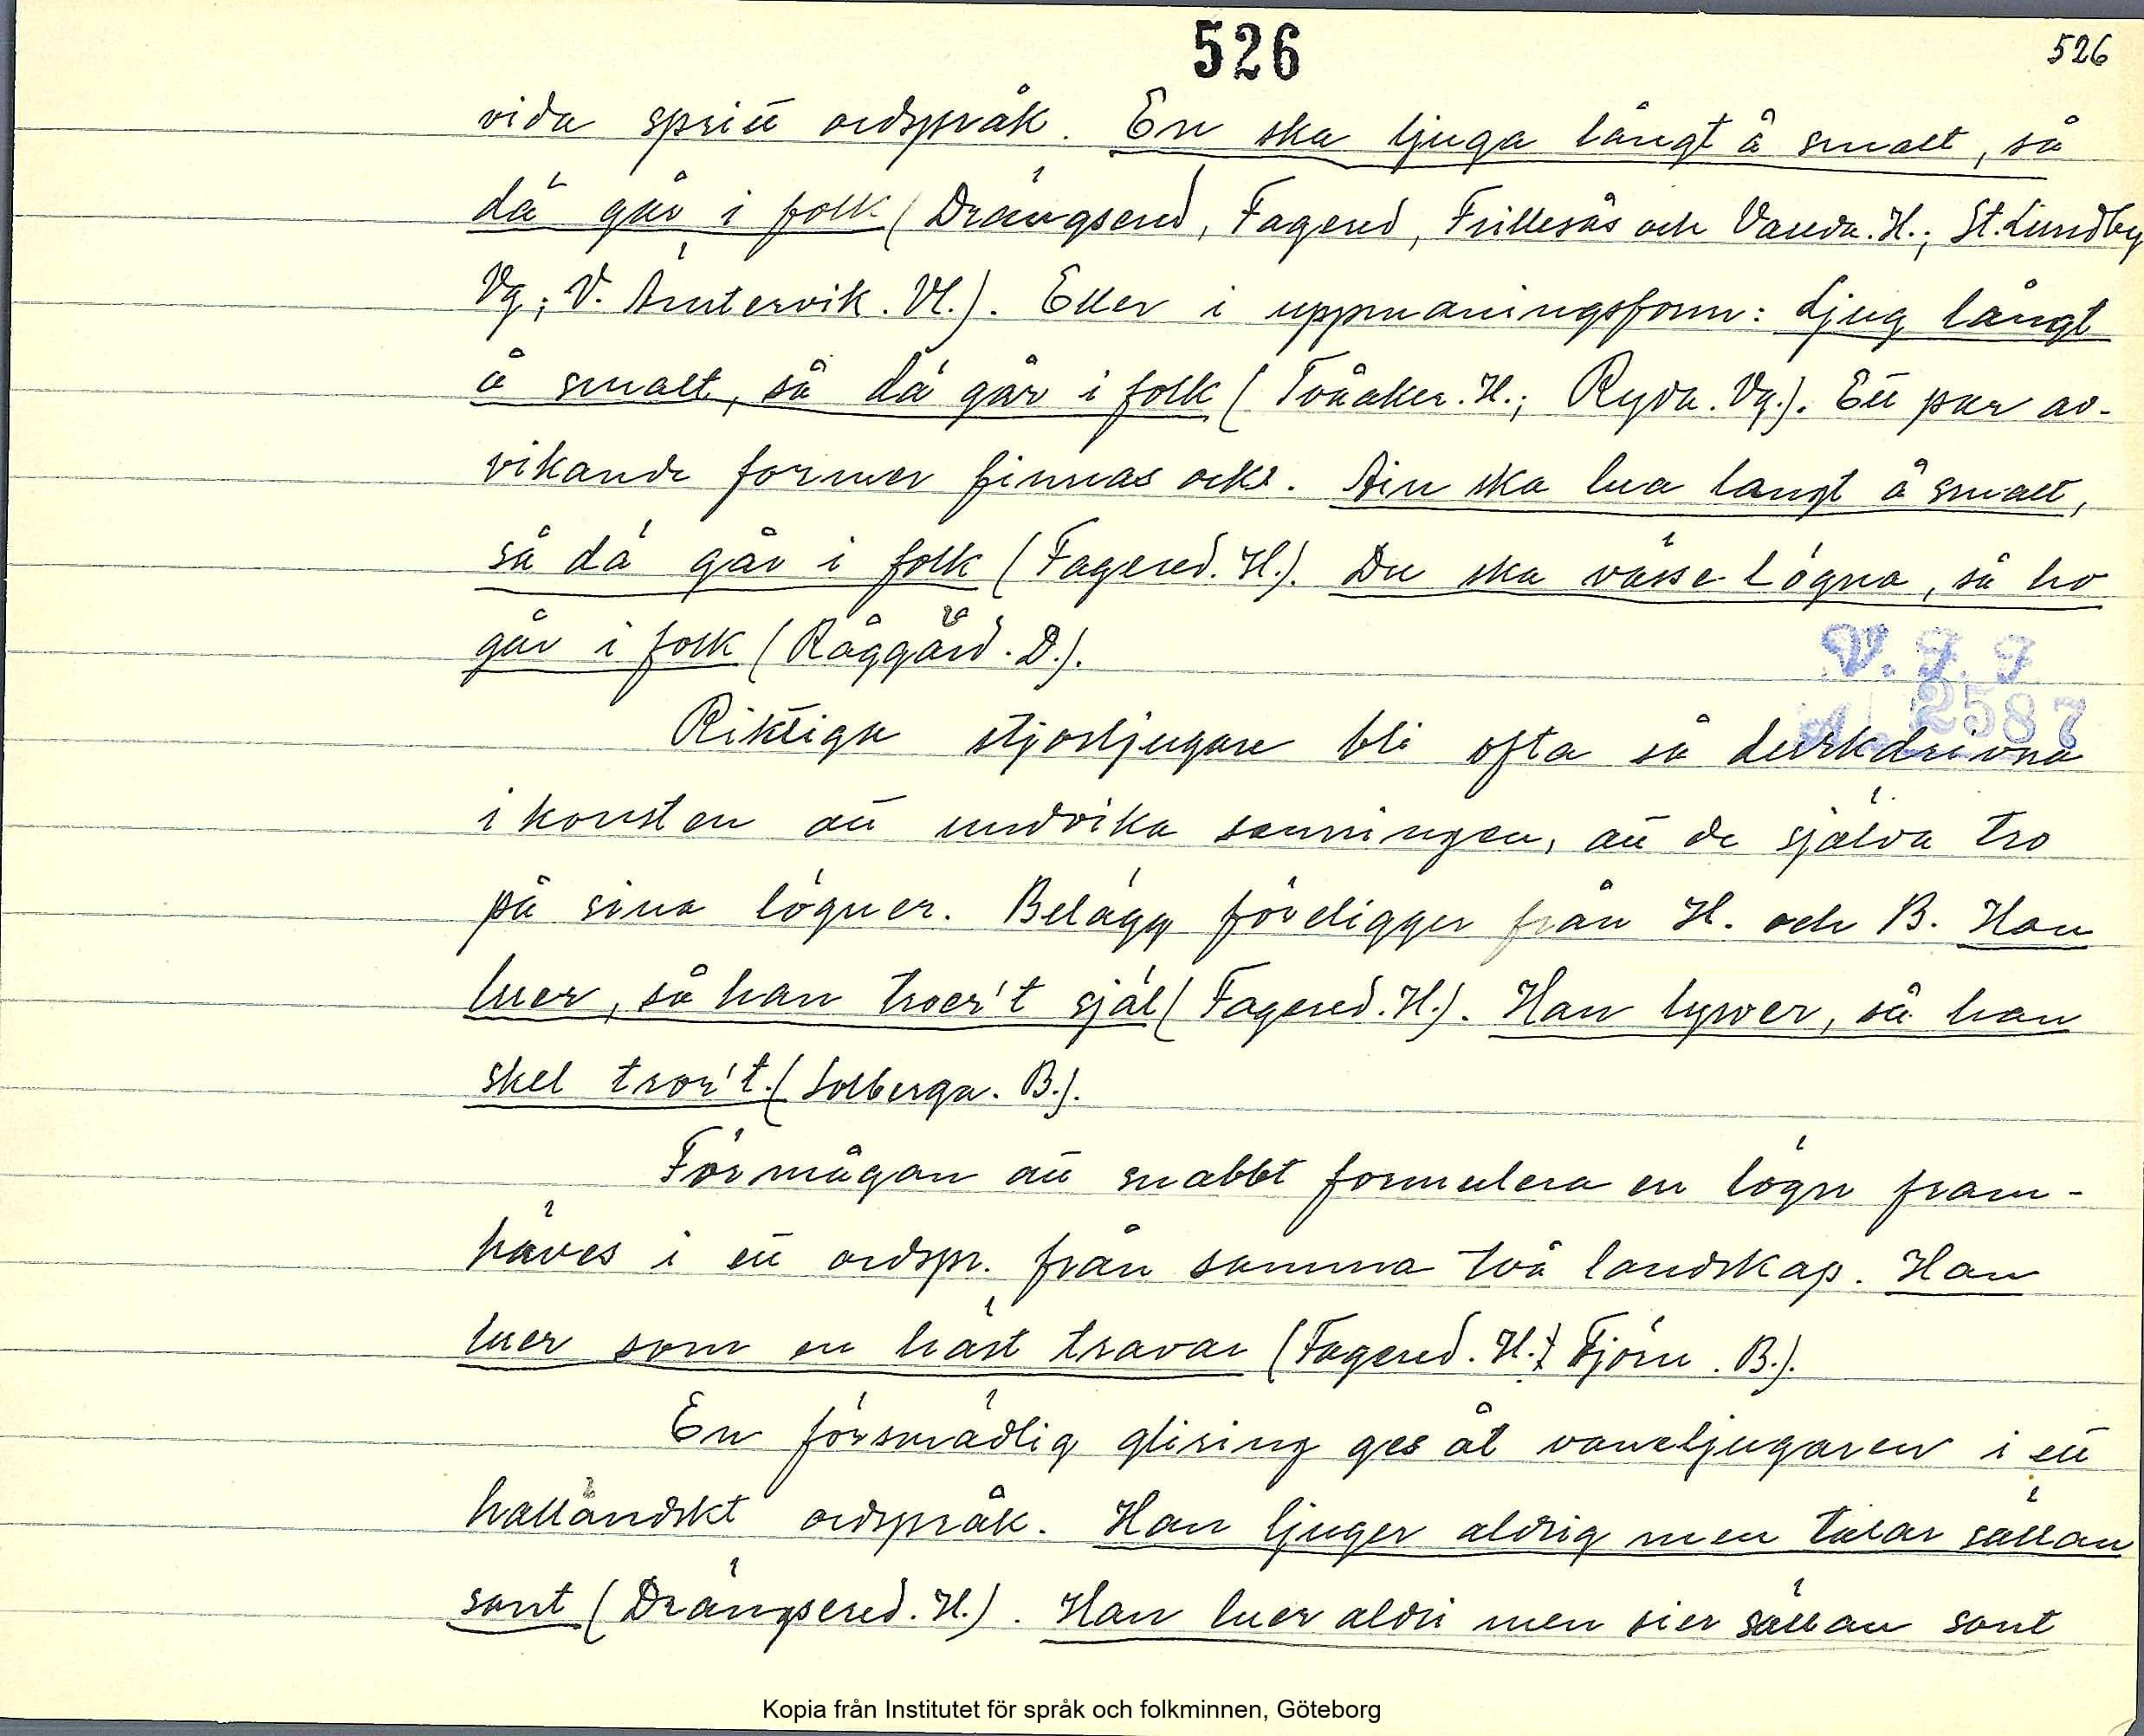 526
526
vida spritt ordspråk. En ska ljuga långt å smalt, så
dä går i folk (Drängsered, Fagered, Frillesås och Vanda. H.; St. Lundby
Vg; V. Ämtervik. Vl.). Eller i uppmaningsform: Ljug långt
å smalt, så dä går i folk (Tvååker. H.; Ryda. Vg.). Ett par av-
vikande former finnas ocks. Ain ska lua langt å smalt,
så dä går i folk (Fagered. H.). Du ska vässe lögna, så ho
går i folk (Råggärd. D.).
V. F. F
A. 2587
Riktiga storljugare bli ofta så durkdrivna
i konsten att undvika sanningen, att de själva tro
på sina lögner. Belägg föreligger från H. och B. Han
luer, så han troer't själ (Fagered. H.). Han lyver, så han
skel tror't. (Solberga. B.).
Förmågan att snabbt formulera en lögn fram-
häves i ett ordspr. från samma två landskap. Han
luer som en häst travar (Fagered. H.; Tjörn. B.).
En försmädlig glising ges åt vaneljugaren i ett
halländskt ordspråk. Han ljuger aldrig men talar sällan
sant (Drängsered. H.). Han luer aldri men sier sällan sant
Kopia från Institutet för språk och folkminnen, Göteborg